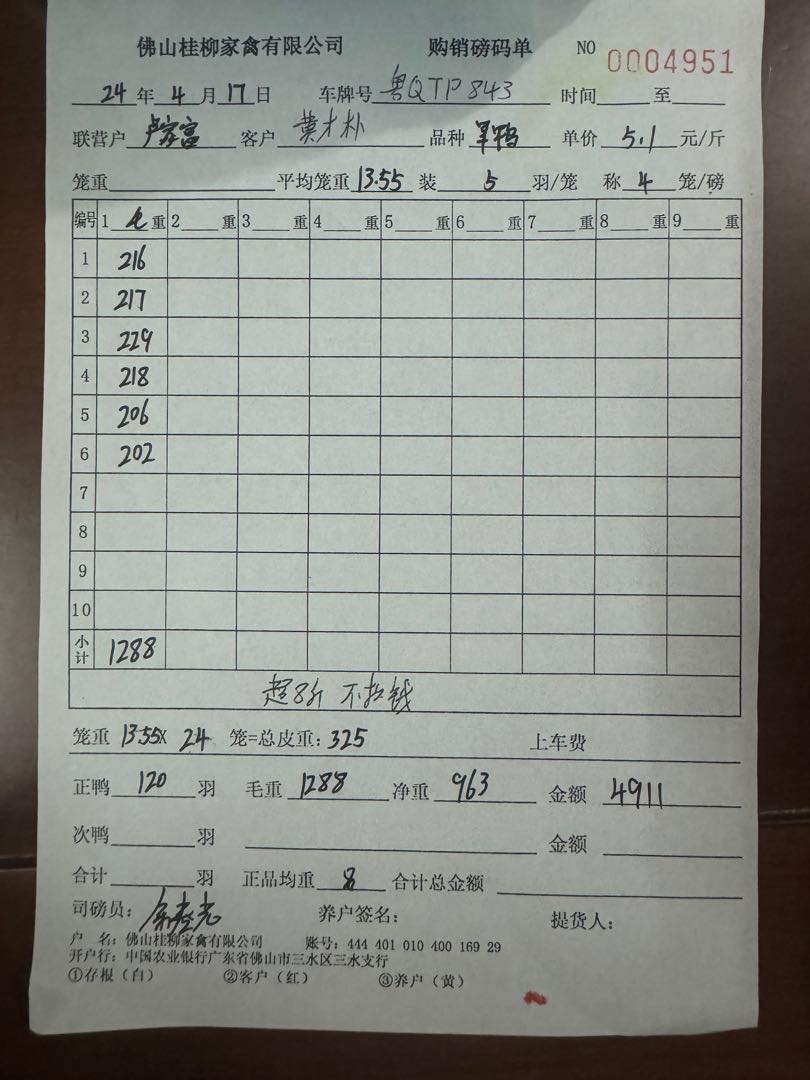 佛山桂柳家禽有限公司 购销磅码单 NO 0004951
24年4月17日 车牌号 粤QTP843 时间____至____
联营户 卢家富 客户 莫才朴 品种 单价 5.1 元/斤
笼重____平均笼重 13.55 装 5 羽/笼 称 4 笼/磅
编号 1 毛 重 2____重 3____重 4____重 5____重 6____重 7____重 8____重 9____重
1 216
2 217
3 229
4 218
5 206
6 202
7
8
9
10
小计 1288
超8斤 不扣钱
笼重 13.55X 24 笼=总皮重: 325 上车费
正鸭 120 羽 毛重 1288 净重 963 金额 4911
次鸭____羽 ____ 金额____
合计____羽 正品均重 8 合计总金额____
司磅员: 养户签名: 提货人:
户 名: 佛山桂柳家禽有限公司 账号: 444 401 010 400 169 29
开户行: 中国农业银行广东省佛山市三水区三水支行
①存根(白) ②客户(红) ③养户(黄)